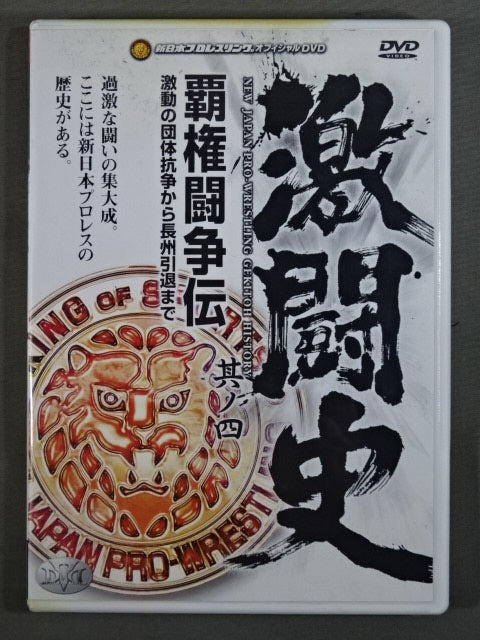 新日本プロレスリング オフィシャルDVD
DVD
VIDEO
激闘史
NEW JAPAN PRO-WRESTLING GEKITOH HISTORY
覇権闘争伝
激動の団体抗争から長州引退まで
其ノ四
過激な闘いの集大成。
ここには新日本プロレスの
歴史がある。
KING OF S
JAPAN PRO-WREST